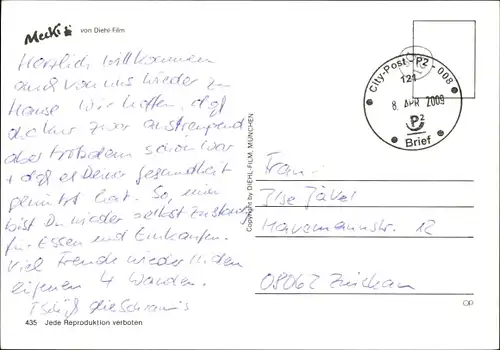 Mecki von Diehl-Film
Herzlich Willkommen
auch von uns wieder zu
Hause. Wir hoffen, daß
die Kur zwar anstrengend
aber trotzdem schön war
+ daß es Deiner Gesundheit
genützt hat. So, nun
bist Du wieder selbst zuständ
für Essen und Einkaufen.
Viel Freude wieder in den
eigenen 4 Wänden.
Tschüß die
435 Jede Reproduktion verboten
Copyright by DIEHL-FILM, MÜNCHEN
City-Post - P2 - 008
121
8. APR 2009
P2
Brief
Frau
Ilse Jäkel
12
08062 Zwickau